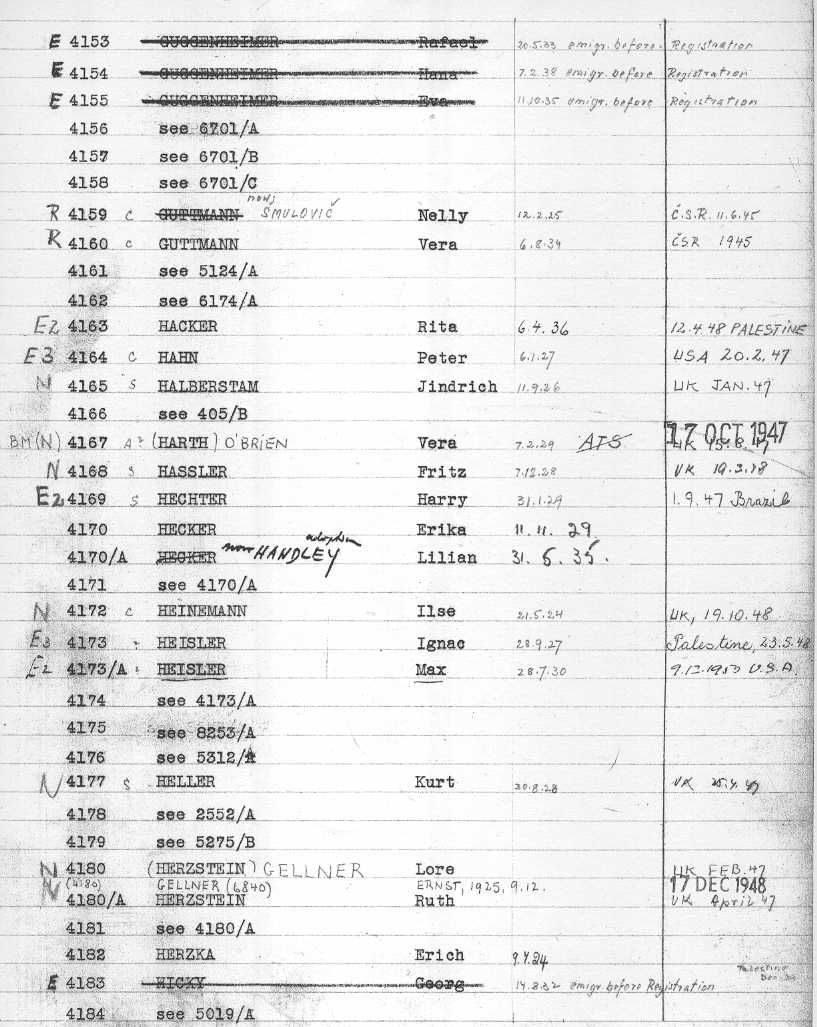 E 4153 GUGGENHEIMER Rafael 20.5.33 emigr. before Registration
E 4154 GUGGENHEIMER Hana 7.2.38 emigr. before Registration
E 4155 GUGGENHEIMER Eva 11.10.35 emigr. before Registration
4156 see 6701/A
4157 see 6701/B
4158 see 6701/C
R 4159 C GUTTMANN now SMULOVIČ Nelly 12.2.25 Č.S.R. 11.6.45
R 4160 C GUTTMANN Vera 6.8.34 ČSR 1945
4161 see 5124/A
4162 see 6174/A
E2 4163 HACKER Rita 6.4.36 12.4.48 PALESTINE
E3 4164 C HAHN Peter 6.1.27 USA 20.2.47
N 4165 S HALBERSTAM Jindrich 11.9.26 UK JAN.47
4166 see 405/B
17 OCT 1947
BM(N) 4167 A? (HARTH) O'BRIEN Vera 7.2.29 ATS UK
N 4168 S HASSLER Fritz 7.12.28 UK 19.3.48
E2 4169 S HECHTER Harry 31.1.29 1.9.47 Brazil
4170 HECKER Erika 11.11.29
4170/A HECKER now HANDLEY adoption Lilian 31.5.35.
4171 see 4170/A
N 4172 C HEINEMANN Ilse 21.5.24 UK, 19.10.48
E3 4173 HEISLER Ignac 28.9.27 Palestine, 23.5.48
E2 4173/A HEISLER Max 28.7.30 U.S.A.
4174 see 4173/A
4175 see 8253/A
4176 see 5312/A
N 4177 S HELLER Kurt 30.8.28 UK
4178 see 2552/A
4179 see 5275/B
N 4180 (HERZSTEIN) GELLNER Lore UK FEB.47
N (4180) GELLNER (6840) ERNST, 1925, 9.12. 17 DEC 1948
4180/A HERZSTEIN Ruth UK April 47
4181 see 4180/A
4182 HERZKA Erich 9.4.24 Palestine Dec.
E 4183 HICKY Georg 14.8.32 emigr. before Registration
4184 see 5019/A